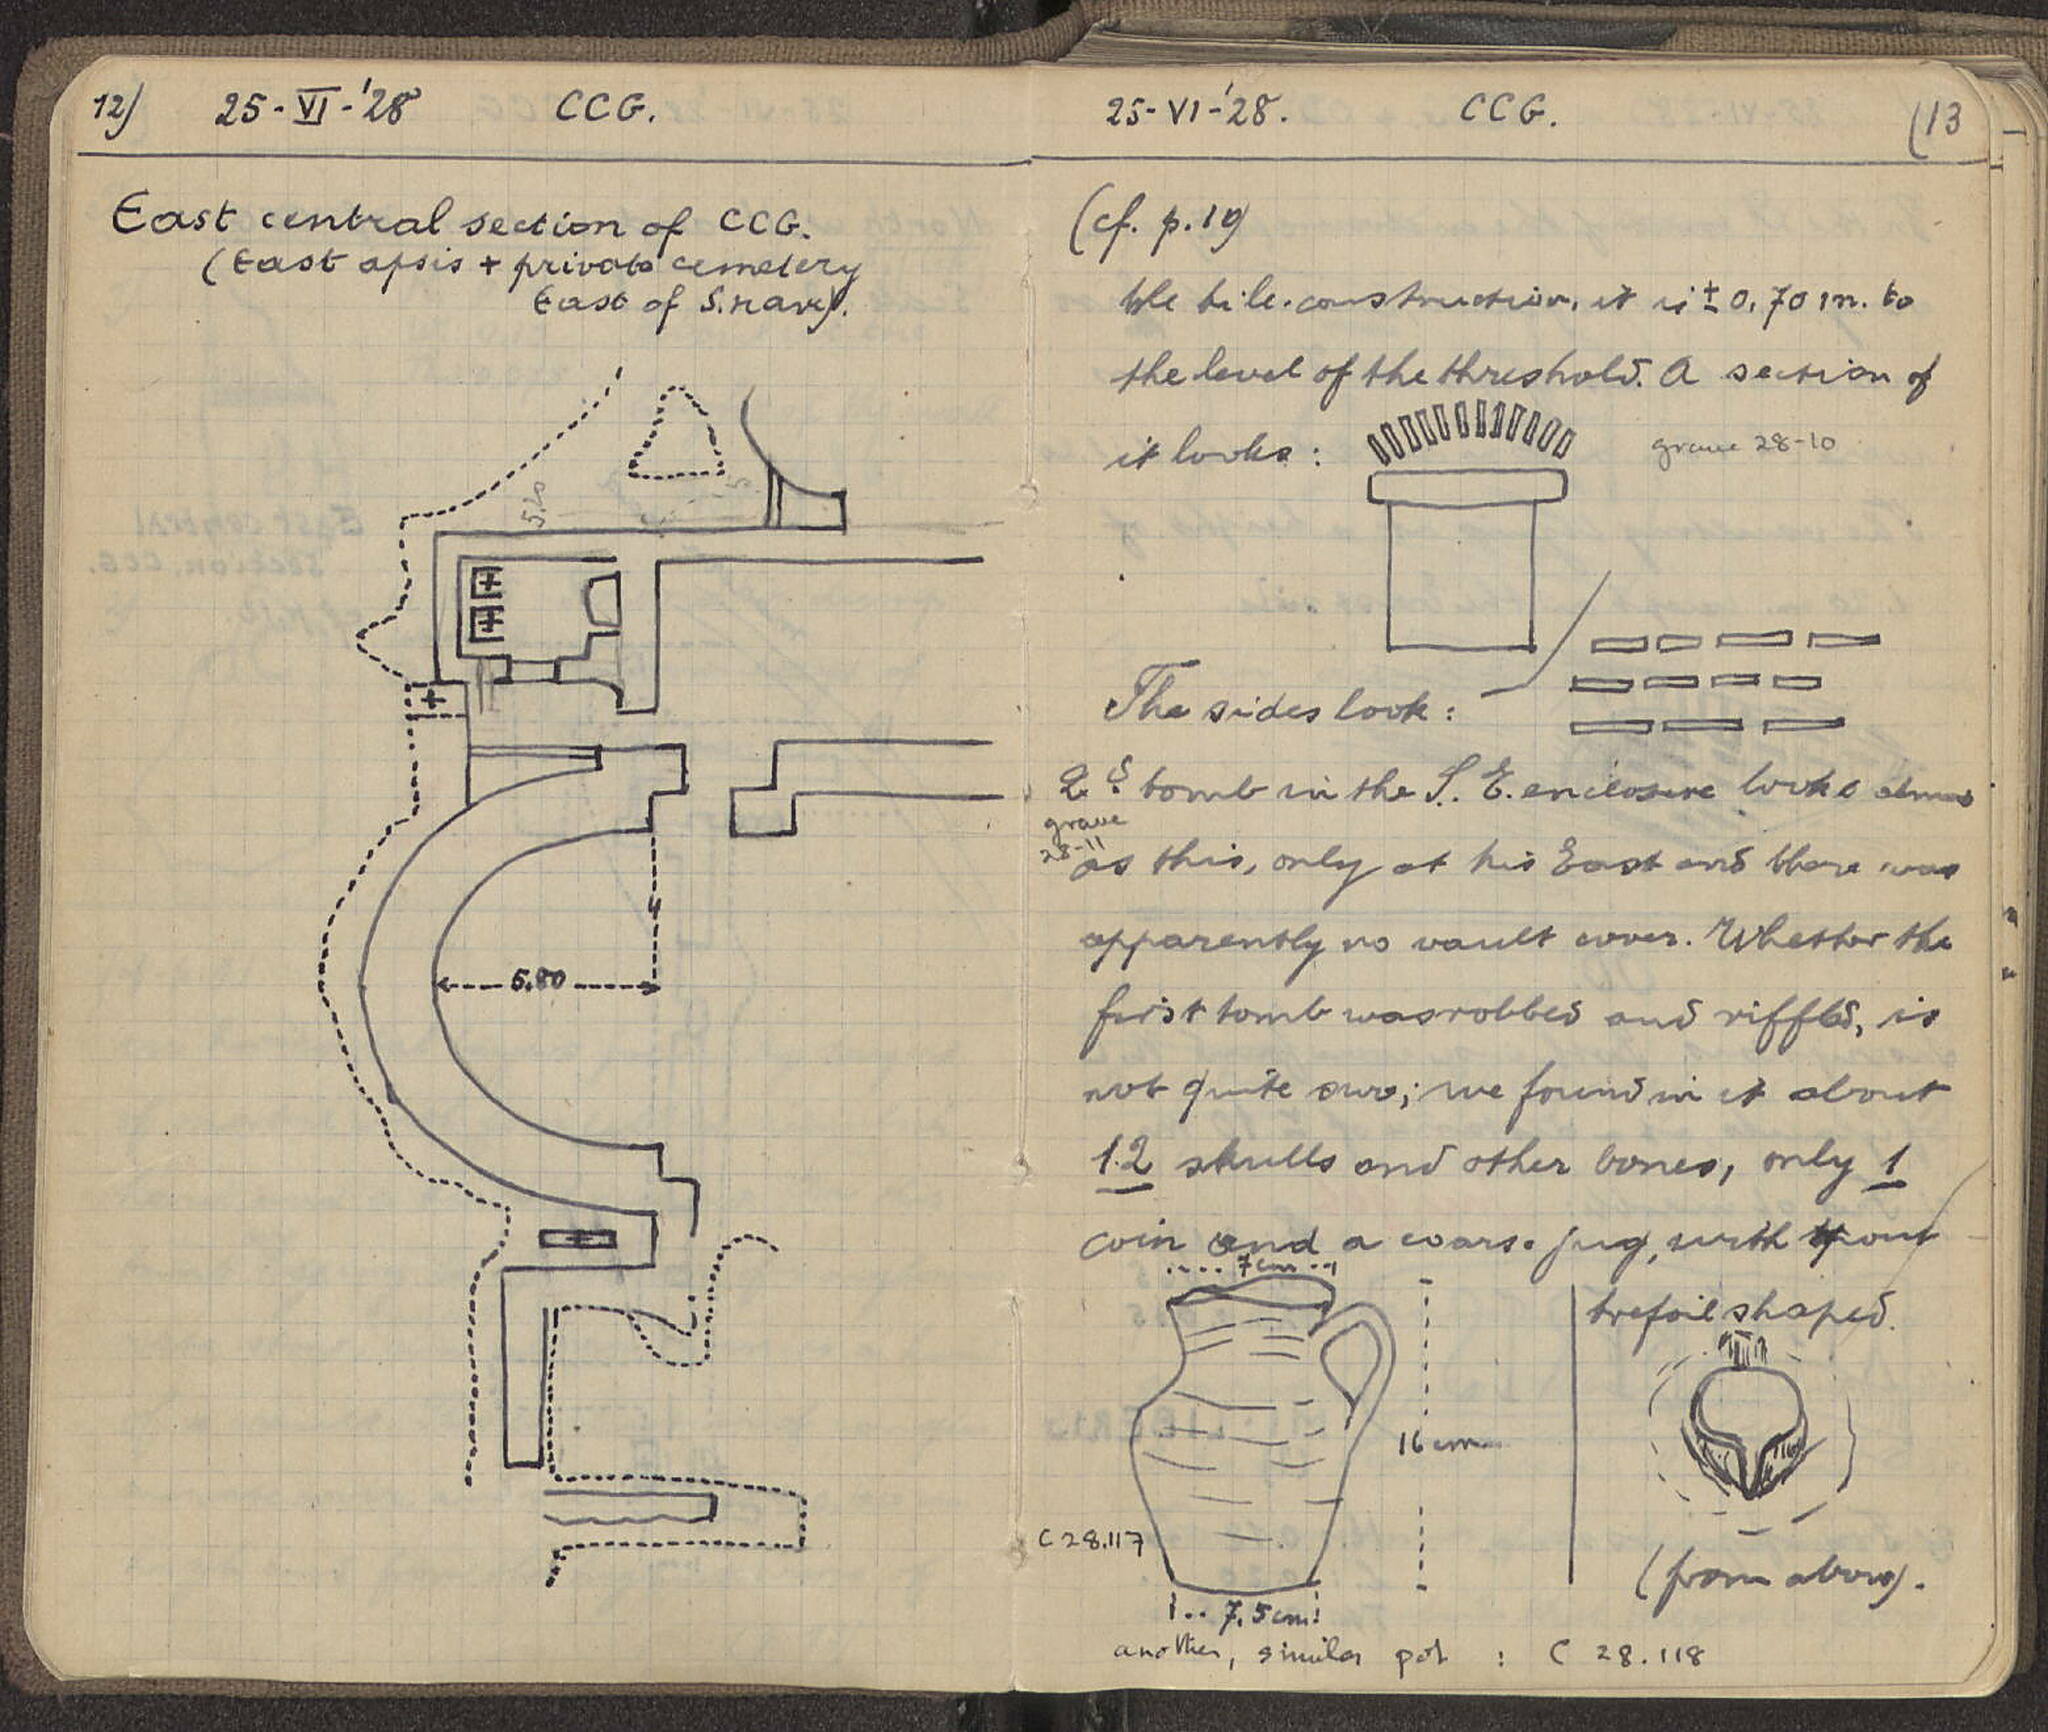 12) 25-VI-'28 CCG.
East central section of CCG.
(East apsis + private cemetery
East of S. nave).
5.40
5,80
25-VI-'28. CCG. (13
(cf. p. 10)
the tile-construction, it is ± 0,70 m. to
the level of the threshold. A section of
it looks :
grave 28-10
The sides look :
tomb in the S. E. enclosure looks almost
grave
28-11
as this, only at his East end there was
apparently no vault cover. Whether the
first tomb was robbed and riffled, is
not quite sure; we found in it about
12 skulls and other bones, only 1
coin and a coarse jug, with spout
7cm
trefoil shaped.
16 cm
C 28.117
(from above).
7,5 cm
another, similar pot : C 28.118